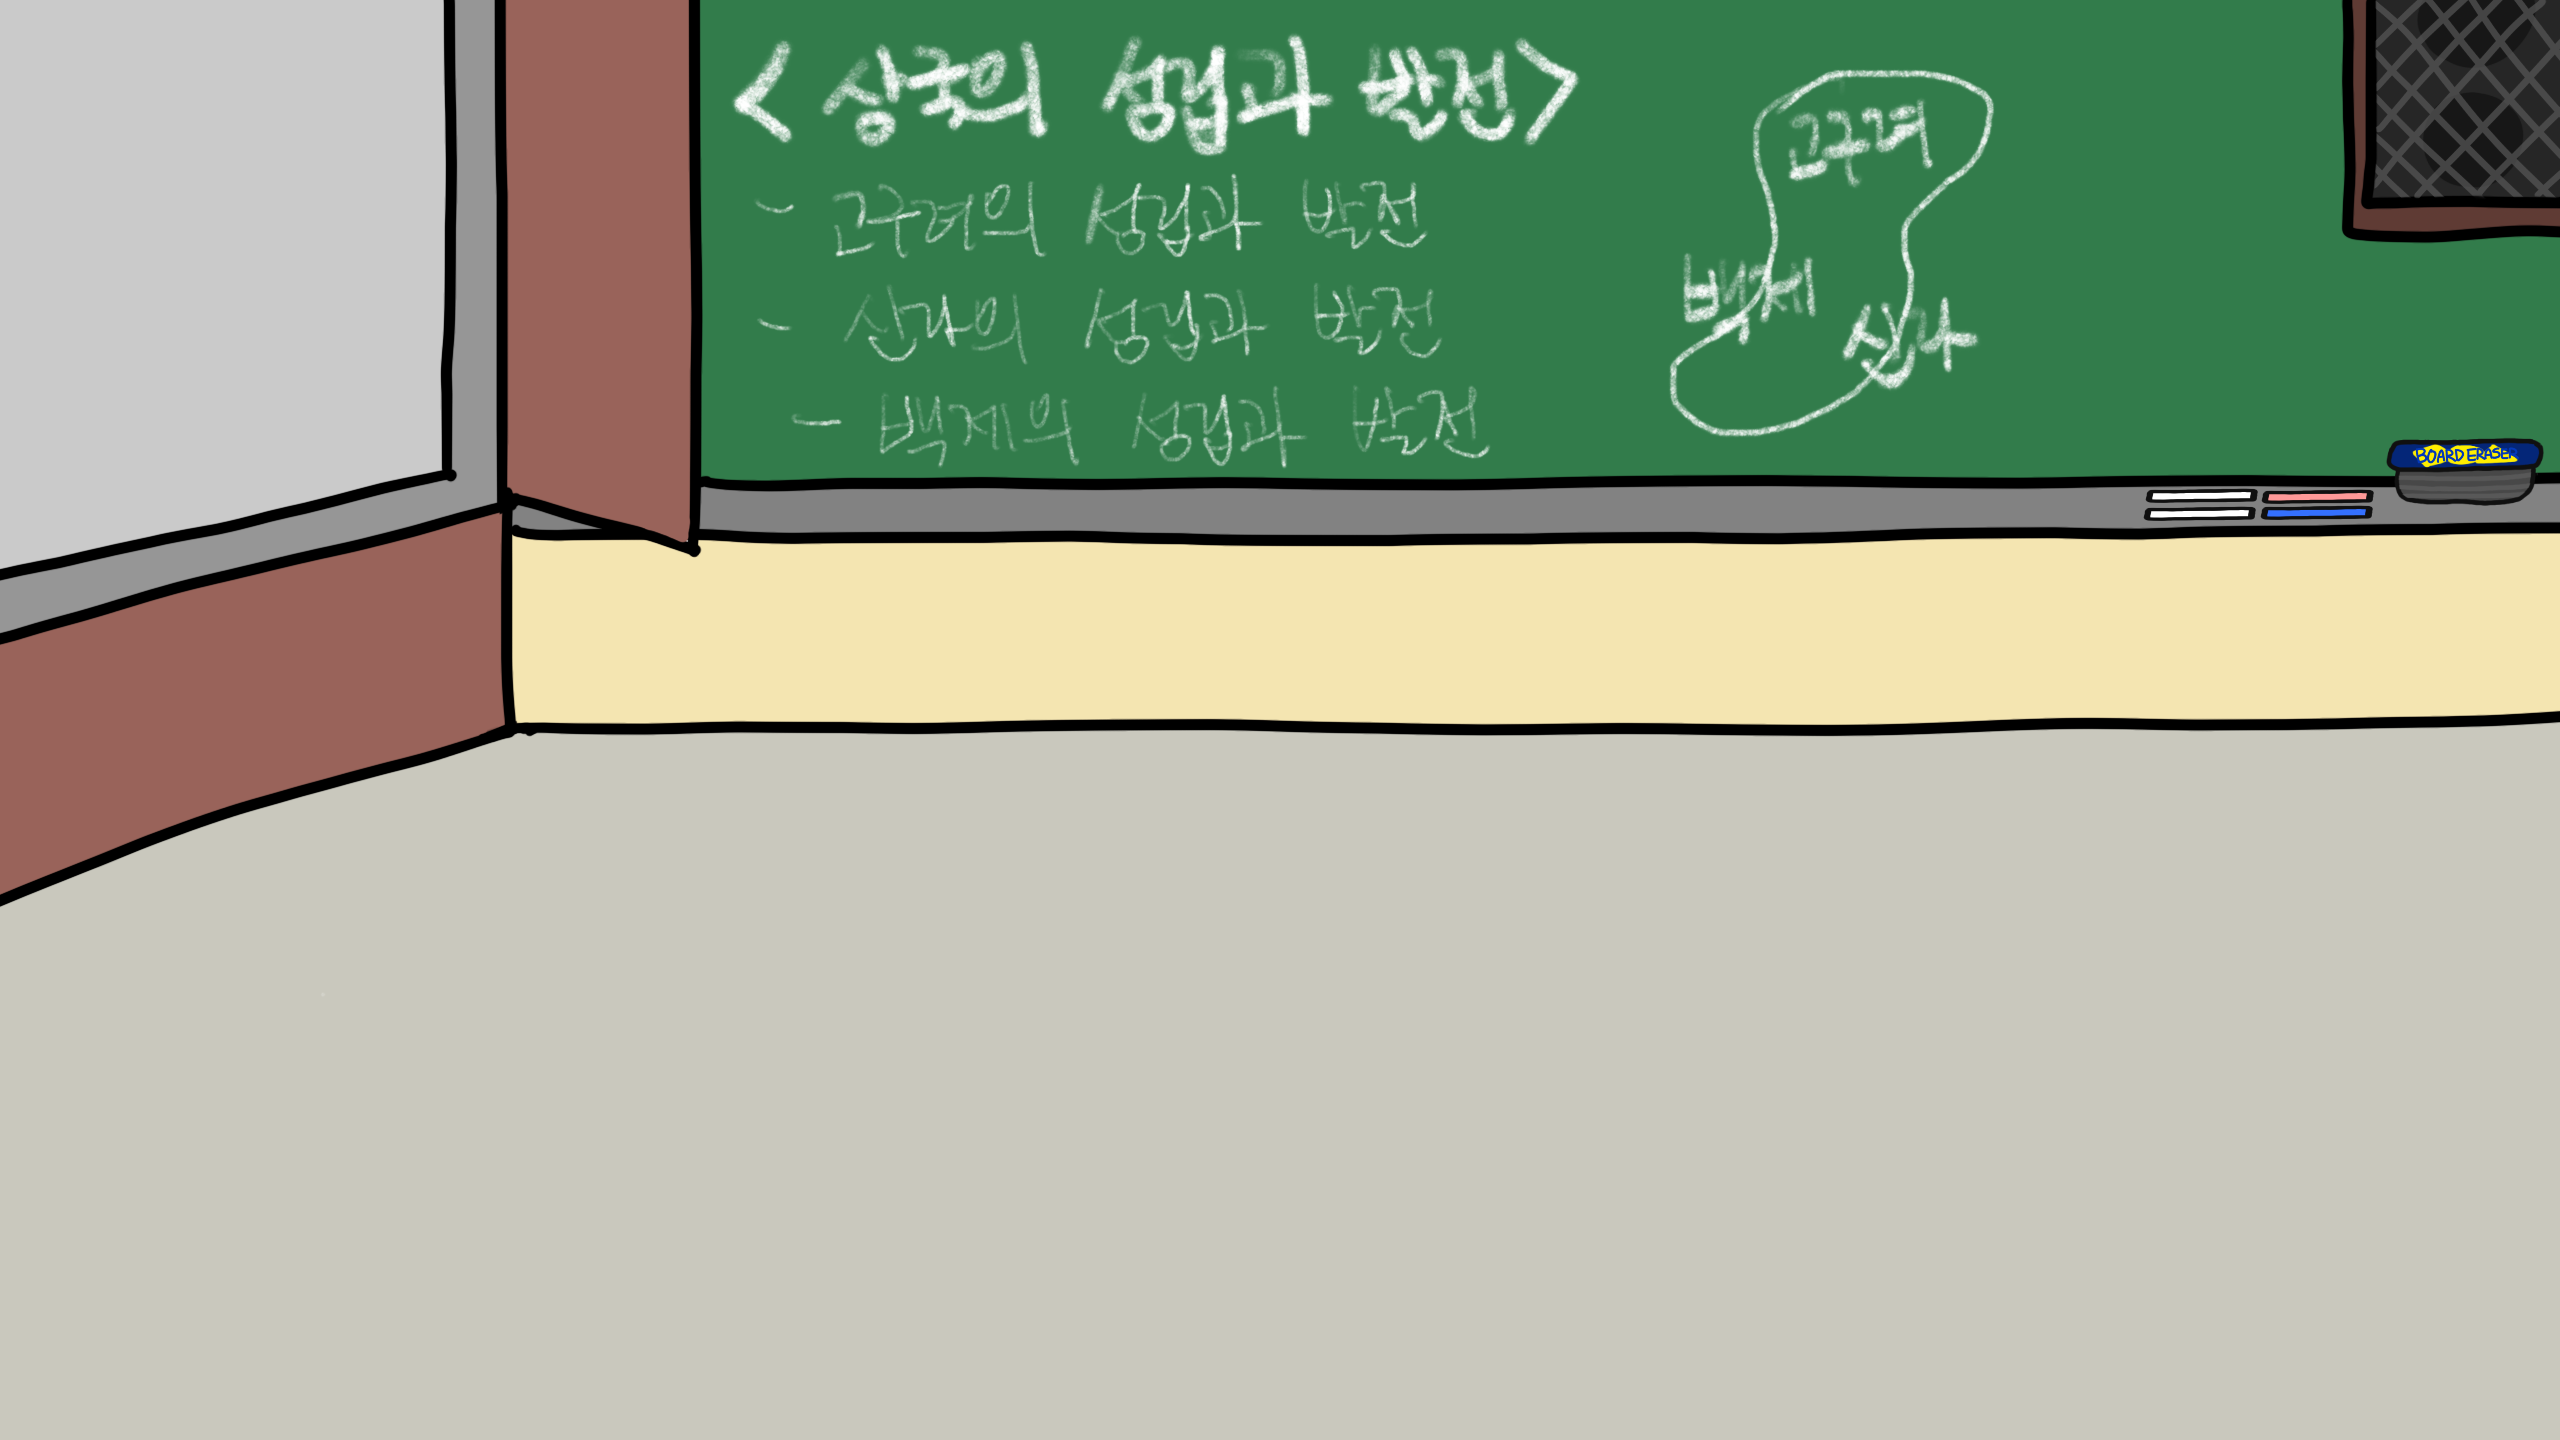 <삼국의 성립과 발전>
- 고구려의 성립과 발전
- 신라의 성립과 발전
- 백제의 성립과 발전
고구려
백제
신라
BOARD ERASER